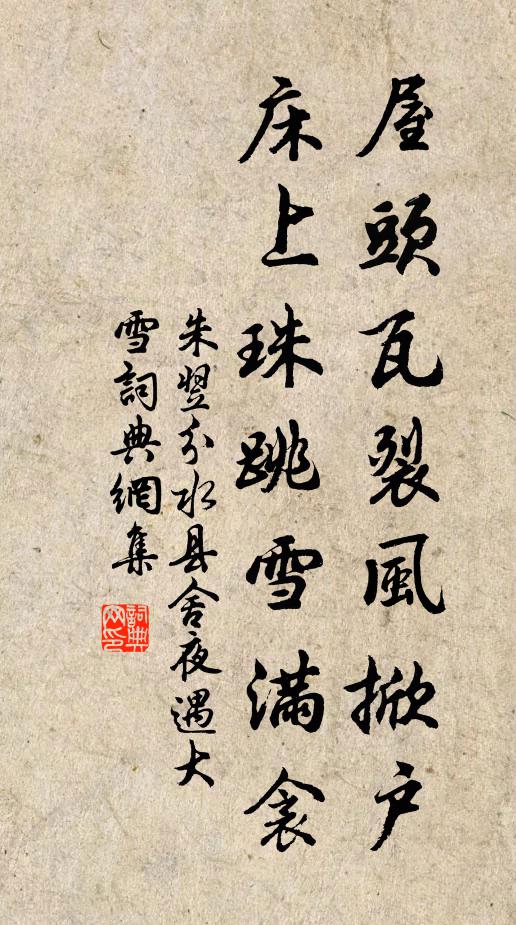 屋頭瓦裂風掀戶
床上珠跳雪滿衾
朱翌分水县舍夜遇大
雪詞典網集
詞典
网印